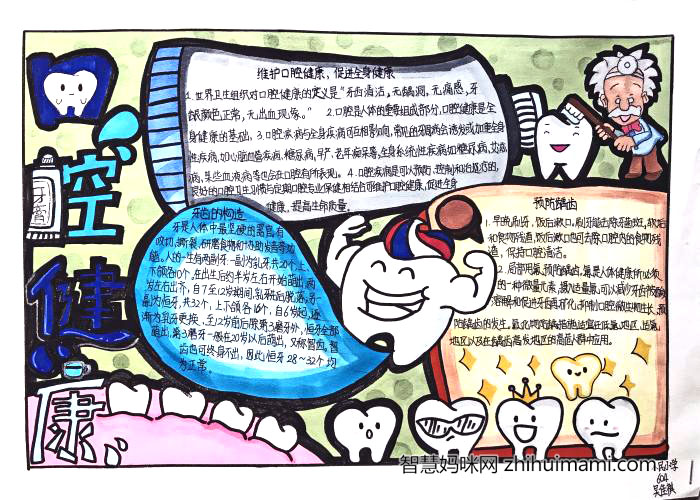 口腔健康
牙膏
维护口腔健康，促进全身健康
1.世界卫生组织对口腔健康的定义是“牙齿清洁，无龋洞，无痛感，牙
龈颜色正常，无出血现象。” 2.口腔是人体的重要组成部分，口腔健康是全
身健康的基础，3.口腔疾病与全身疾病可互相影响，常见的牙周病会诱发或加重全身
性疾病，如心脑血管疾病、糖尿病，早产，老年痴呆等，全身系统性疾病如糖尿病，艾滋
病，某些血液病等也会在口腔有所表现。4.口腔疾病是可以预防，控制和治疗的，
良好的口腔卫生习惯与定期口腔专业保健相结合可维护口腔健康，促进全身
健康，提高生命质量。
牙齿的构造
牙是人体中最坚硬的器官有
吸切，撕裂，研磨食物和协助发音等功
能。人的一生有两副牙，一副为乳牙共20个，上
下颌各10个，在出生后约半岁左右开始萌出，两
岁左右出齐，自7至12岁期间，乳牙先后脱落。另一
副为恒牙，共32个，上下颌各16个，自6岁起，逐
渐为乳牙更换，至12岁前后除第3磨牙外，恒牙全部
萌出，第3磨牙一般在20岁以后萌出，又称智齿，智
齿也可终身不出，因此，恒牙28～32个均
为正常。
预防龋齿
1.早晚刷牙，饭后漱口，刷牙能去除牙菌斑，软垢
和食物残渣，饭后漱口也可去除口腔内的食物残
渣，保持口腔清洁。
2.局部用氟，预防龋齿，氟是人体健康所必须
的一种微量元素，摄入适量氟，可以减少牙齿
溶解和促进牙齿再矿化，抑制口腔微生物生长，预
防龋齿的发生。
地区以及在龋齿高发地区的高危人群中应用。
智慧妈咪网 zhihuimami.com
604